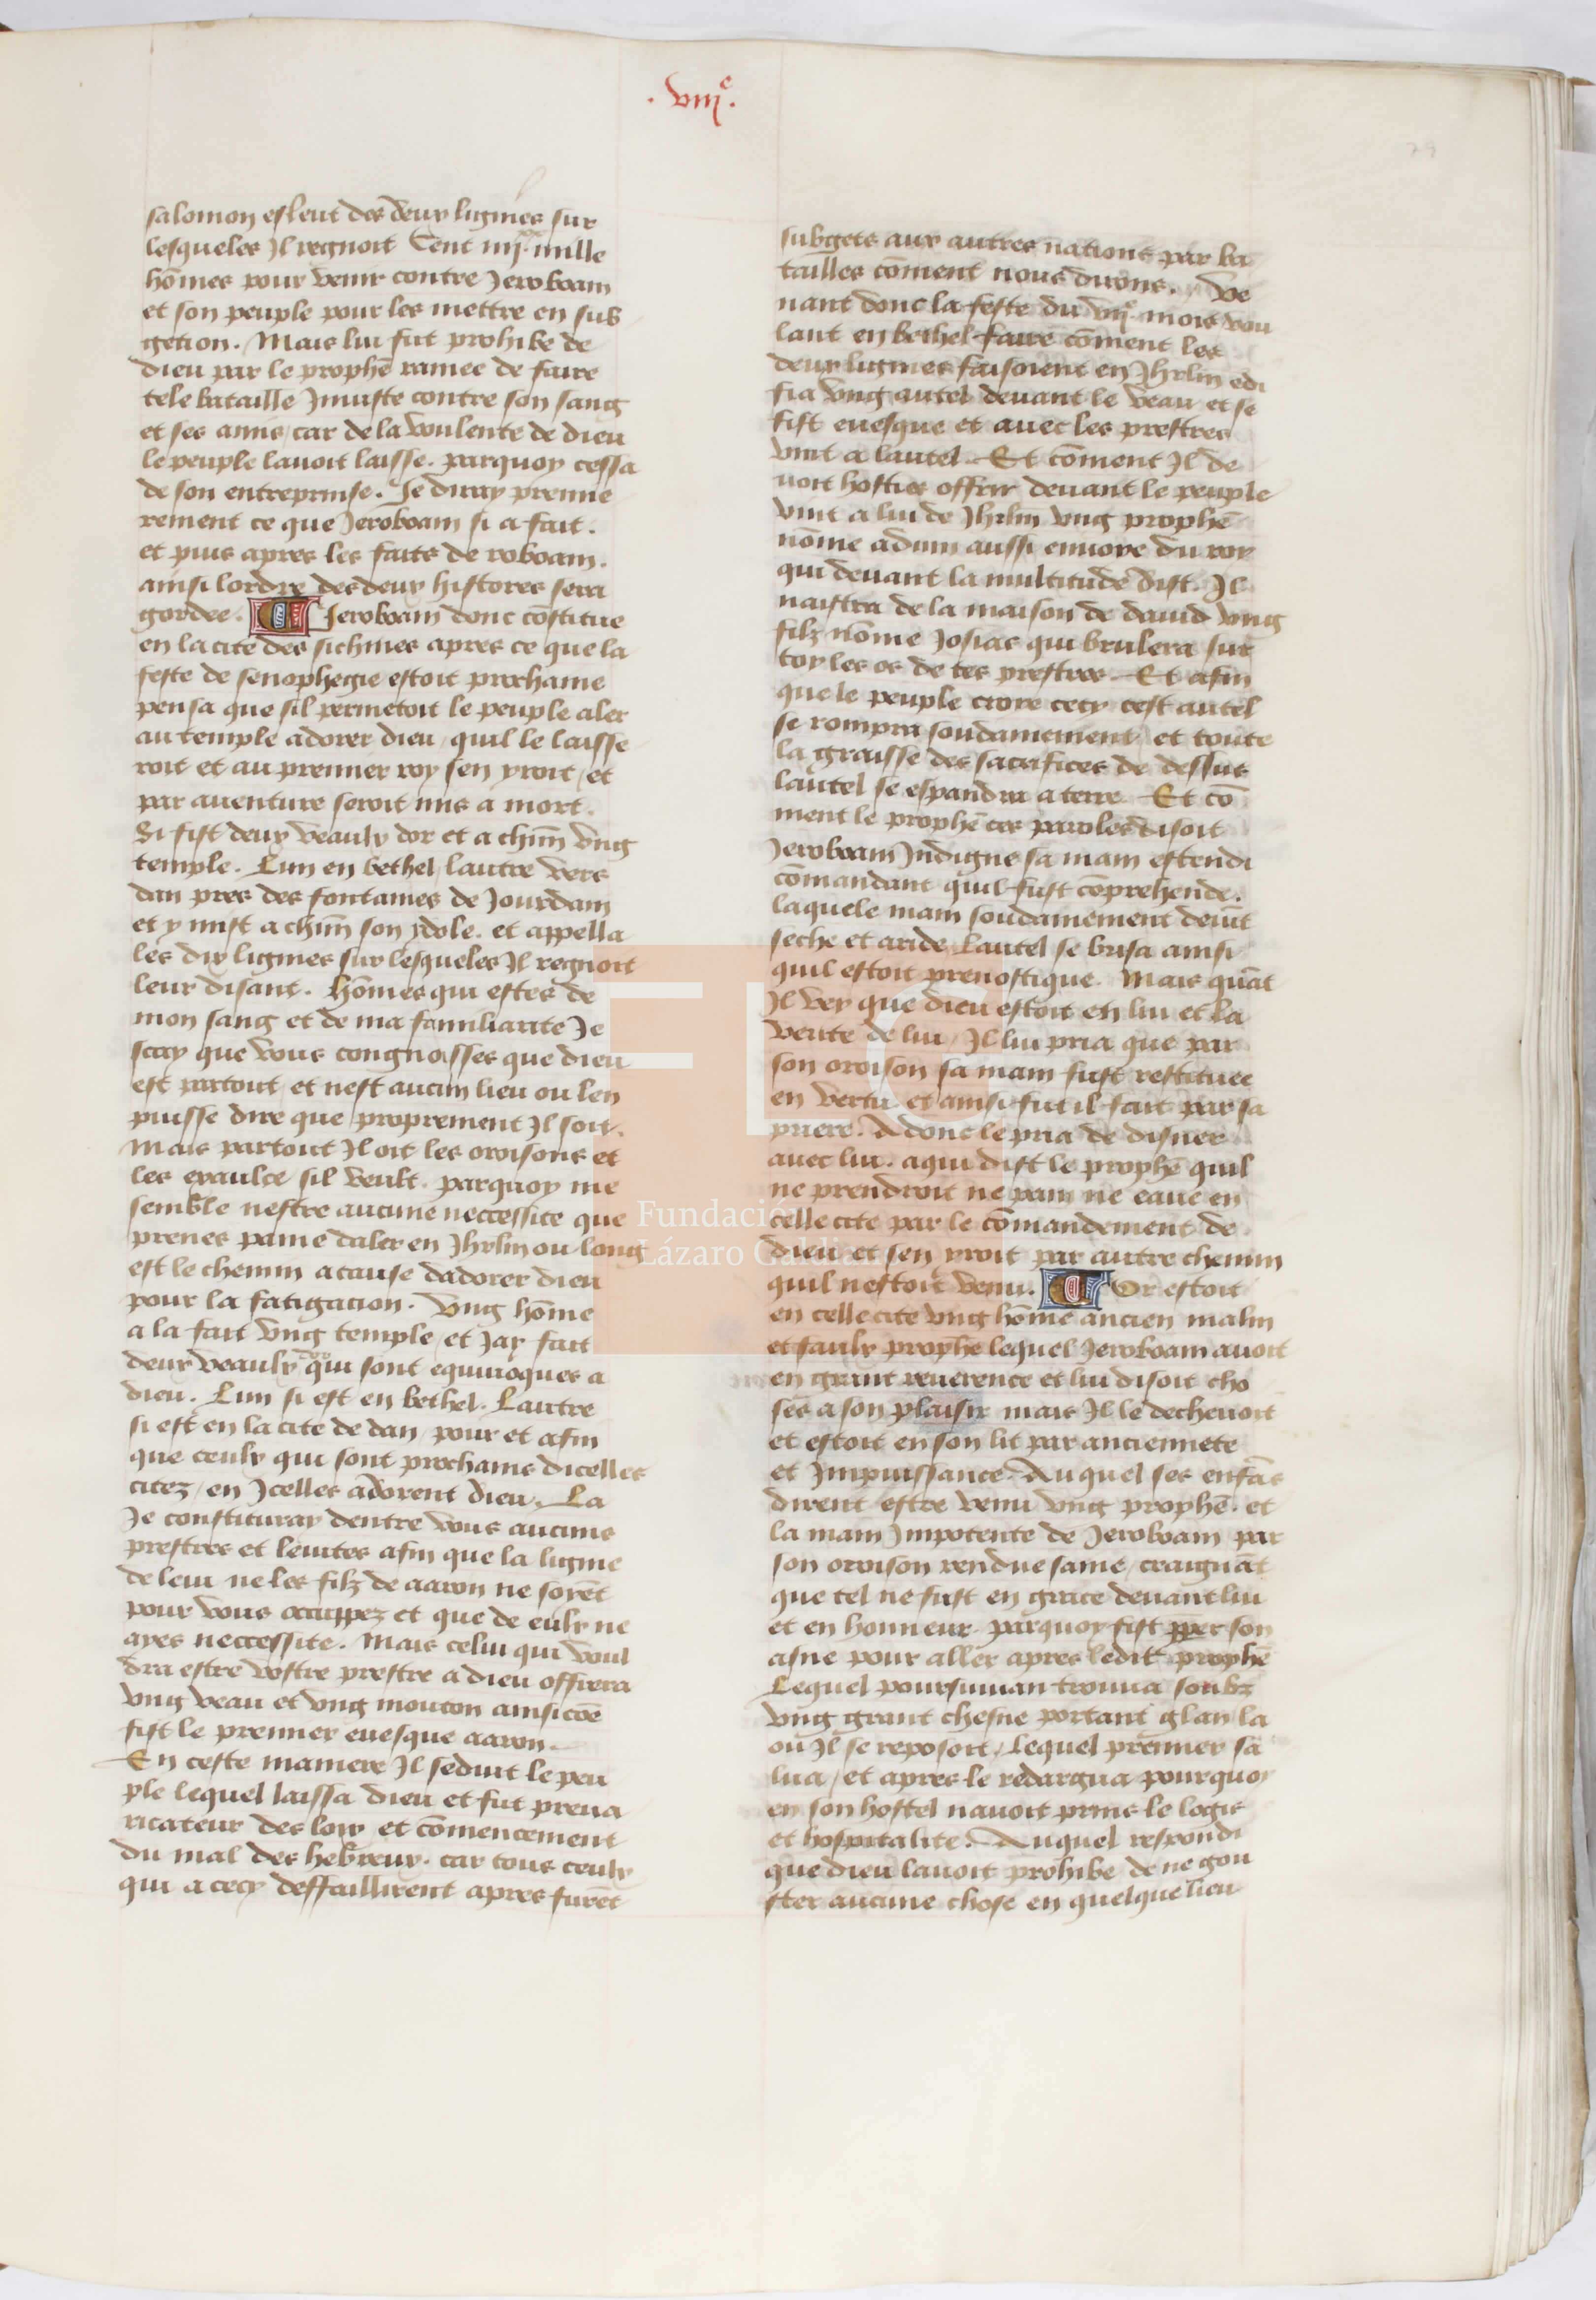 .viij.e
79
salomon esleut des deux lignies sur
lesqueles Il regnoit Cent iiij.xx mille
hōmes pour venir contre Jeroboam
et son peuple pour les mettre en sub
getion. Mais lui fut prohibe de
dieu par le prophē ramee de faire
tele bataille Iniuste contre son sang
et ses amis / car de la voulente de dieu
le peuple lauoit laisse. parquoy cessa
de son entreprinse. Je diray premie
rement ce que Jeroboam si a fait.
et puis apres les faits de roboam.
ainsi lordre des deux histores sera
gordee. Jeroboam donc cōstitue
en la cite des sichmes apres ce que la
feste de senophegie estoit prochaine
pensa que sil permetoit le peuple aler
au temple adorer dieu / quil le laisse
roit et au premier roy sen yroit / et
par auenture seroit mis a mort.
Si fist deux veaulx dor et a chūn vng
temple. Lun en bethel / lautre vers
dan pres des fontaines de Jourdam
et y mist a chūn son ydole. et appella
les dix lignies sur lesqueles Il regnoit
leur disant. hōmes qui estes de
mon sang et de ma familiarite Je
scay que vous congnoisses que dieu
est partout / et nest aucun lieu ou len
puisse dire que proprement Il soit.
Mais partout Il oit les oroisons et
les exaulce sil veult. parquoy me
semble nestre aucune neccessite que
prenes paine daler en Jhrlm ou long
est le chemin a cause dadorer dieu
pour la fatigacion. Vng hōme
a la fait vng temple / et Jay fait
deux veaulx dor qui sont equiuoques a
dieu. Lun si est en bethel. Lautre
si est en la cite de dan / pour et afin
que ceulx qui sont prochains dicelles
citez / en Icelles adorent dieu. La
Je constituray dentre vous aucuns
prestres et leuites afin que la lignie
de leui ne les filz de aaron ne soyēt
pour vous occuppez et que de eulx ne
ayes neccessite. Mais celui qui voul
dra estre vostre prestre a dieu offrera
vng veau et vng mouton ainsi cōe
fist le premier euesque aaron.
En ceste maniere Il seduit le peu
ple lequel laissa dieu et fut preua
ricateur des loix et cōmencement
du mal des hebreux. car tous ceulx
qui a cecy deffaillirent apres furēt
subgets aux autres nations par ba
tailles cōment nous dirons. Ve
nant donc la feste du vij.e mois vou
lant en bethel faire cōment les
deux lignies faisoient en Jhrlm edi
fia vng autel deuant le veau et se
fist euesque et auec les prestres
vint a lautel. Et cōment Il de
uoit hosties offrir deuant le peuple
vint a lui de Jhrlm vng prophē
nōme adum aussi enuoye du roy
qui deuant la multitude dist. Il
naistra de la maison de dauid vng
filz nōme Josias qui brulera sur
toy les os de tes prestres. Et afin
que le peuple croye cecy cest autel
se rompra soudainement et toute
la graisse des sacrifices de dessus
lautel se espandra a terre. Et cō
ment le prophē ces paroles disoit
Jeroboam Indigne sa main estendi
cōmandant quil fust cōprehende.
laquele main soudainement deuīt
seche et aride / Lautel se brisa ainsi
quil estoit prenostique. Mais quāt
Il vey que dieu estoit en lui et la
verite de lui / Il lui pria que par
son oroison sa main fust restituee
en vertu et ainsi fut il fait par sa
priere. Adonc le pria de disner
auec lui. a qui dist le prophē quil
ne prendroit ne pain ne eaue en
celle cite par le cōmandement de
dieu et sen yroit par autre chemin
quil nestoit venu. Or estoit
en celle cite vng hōme ancien malin
et faulx prophē lequel Jeroboam auoit
en grant reuerence et lui disoit cho
ses a son plaisir mais Il le decheuoit
et estoit en son lit par anciennete
et Impuissance. Auquel ses enfās
dirent estre venu vng prophē. et
la main Impotente de Jeroboam par
son oroison rendue saine / craignāt
que tel ne fust en grace deuant lui
et en honneur. parquoy fist pper son
asne pour aller apres ledit prophē
Lequel poursuiuan trouua soubz
vng grant chesne portant glan la
ou Il se reposoit. Lequel premier sa
lua / et apres le redargua pourquoy
en son hostel nauoit prins le logis
et hospitalite. Auquel respondi
que dieu lauoit prohibe de ne gou
ster aucune chose en quelque lieu
Fundación
Lázaro Galdiano